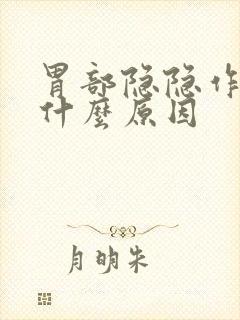 胃部隐隐作
什麼原因
月明朱